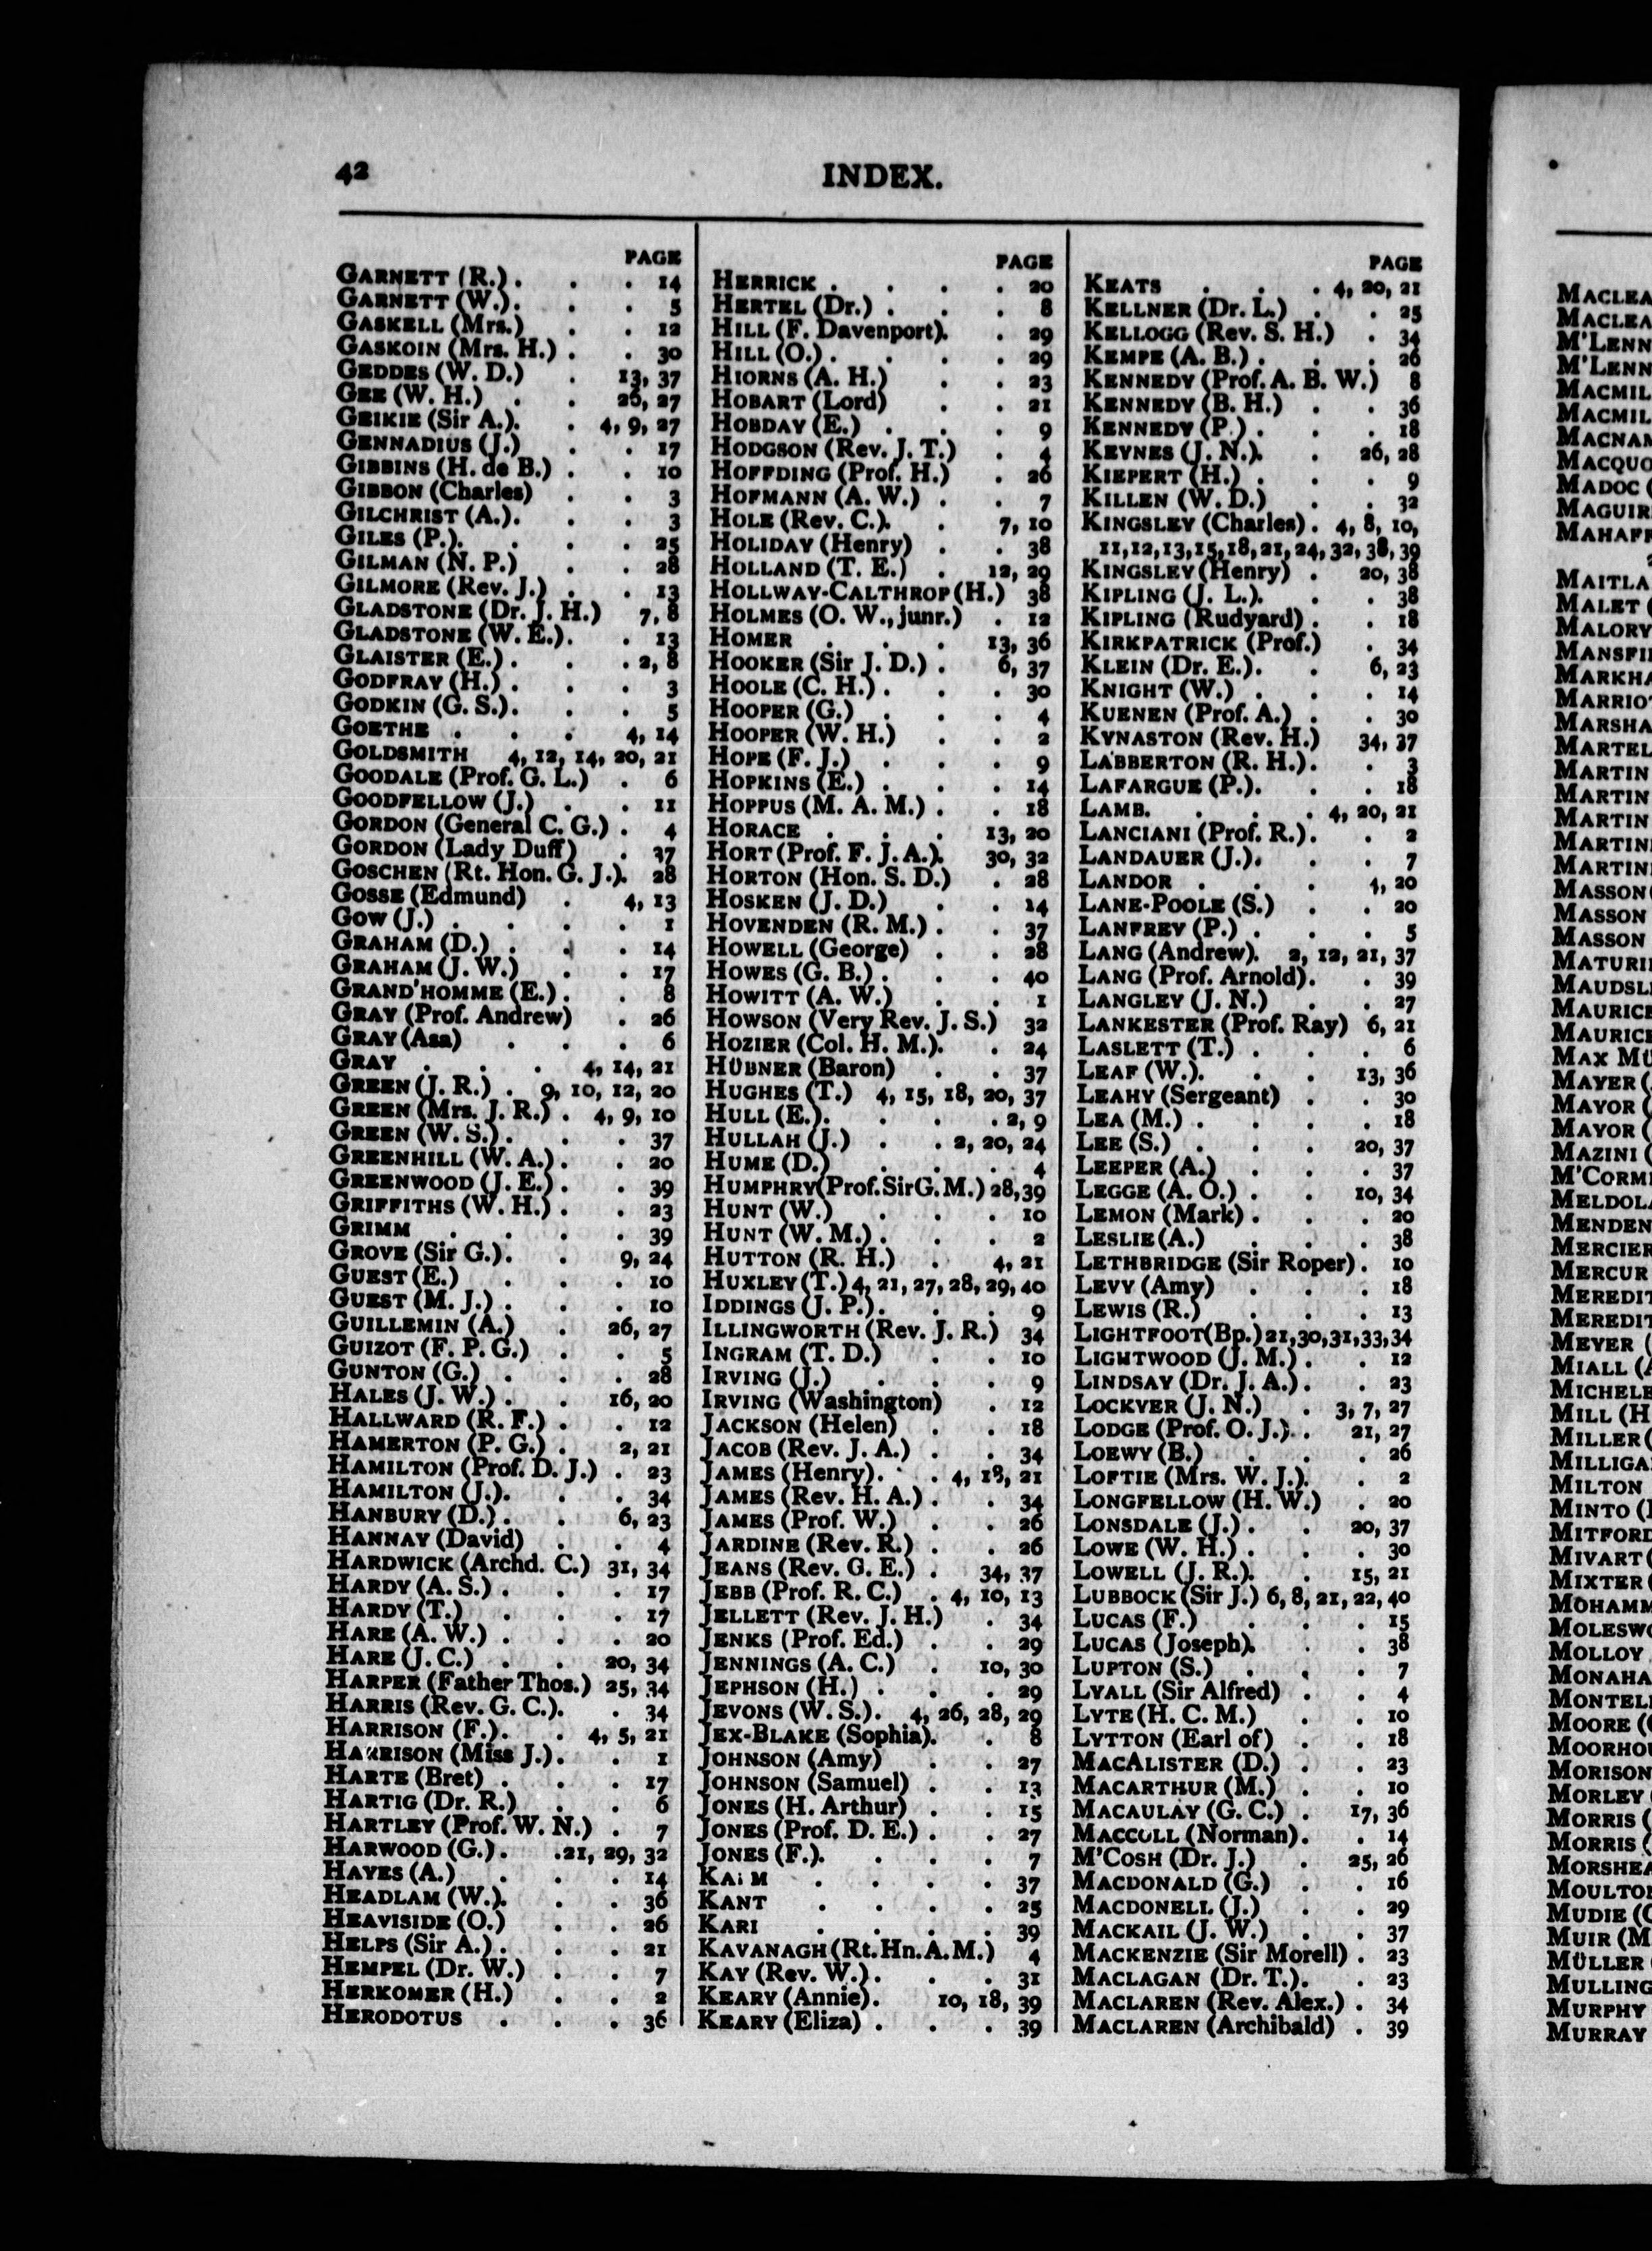 42
INDEX.
PAGE
GARNETT (R.) . . . 14
GARNETT (W.) . . . 5
GASKELL (Mrs.) . . 12
GASKOIN (Mrs. H.) . . 30
GEDDES (W. D.) . 13, 37
GEE (W. H.) . . 26, 27
GEIKIE (Sir A.). . 4, 9, 27
GENNADIUS (J.) . . 17
GIBBINS (H. de B.) . . 10
GIBBON (Charles) . . 3
GILCHRIST (A.). . . 3
GILES (P.). . . . 25
GILMAN (N. P.) . . 28
GILMORE (Rev. J.) . . 13
GLADSTONE (Dr. J. H.) 7, 8
GLADSTONE (W. E.). . 13
GLAISTER (E.) . . . 2, 8
GODFRAY (H.) . . . 3
GODKIN (G. S.). . . 5
GOETHE . . . 4, 14
GOLDSMITH 4, 12, 14, 20, 21
GOODALE (Prof. G. L.) . 6
GOODFELLOW (J.) . . 11
GORDON (General C. G.) . 4
GORDON (Lady Duff) . 37
GOSCHEN (Rt. Hon. G. J.). 28
GOSSE (Edmund) . 4, 13
GOW (J.) . . . . 1
GRAHAM (D.) . . . 14
GRAHAM (J. W.) . . 17
GRAND'HOMME (E.) . . 8
GRAY (Prof. Andrew) . 26
GRAY (Asa) . . . 6
GRAY . . . 4, 14, 21
GREEN (J. R.) . 9, 10, 12, 20
GREEN (Mrs. J. R.) . 4, 9, 10
GREEN (W. S.) . . . 37
GREENHILL (W. A.) . . 20
GREENWOOD (J. E.) . . 39
GRIFFITHS (W. H.) . . 23
GRIMM . . . . 39
GROVE (Sir G.). . 9, 24
GUEST (E.) . . . 10
GUEST (M. J.) . . . 10
GUILLEMIN (A.) . 26, 27
GUIZOT (F. P. G.) . . 5
GUNTON (G.) . . . 28
HALES (J. W.) . . 16, 20
HALLWARD (R. F.) . . 12
HAMERTON (P. G.) . 2, 21
HAMILTON (Prof. D. J.) . 23
HAMILTON (J.). . . 34
HANBURY (D.) . . 6, 23
HANNAY (David) . . 4
HARDWICK (Archd. C.) 31, 34
HARDY (A. S.) . . . 17
HARDY (T.) . . . 17
HARE (A. W.) . . . 20
HARE (J. C.) . . 20, 34
HARPER (Father Thos.) 25, 34
HARRIS (Rev. G. C.). . 34
HARRISON (F.). . 4, 5, 21
HARRISON (Miss J.). . 1
HARTE (Bret) . . . 17
HARTIG (Dr. R.) . . 6
HARTLEY (Prof. W. N.) . 7
HARWOOD (G.) . .21, 29, 32
HAYES (A.) . . . 14
HEADLAM (W.). . . 36
HEAVISIDE (O.) . . 26
HELPS (Sir A.) . . . 21
HEMPEL (Dr. W.) . . 7
HERKOMER (H.) . . 2
HERODOTUS . . . 36
PAGE
HERRICK . . . . 20
HERTEL (Dr.) . . . 8
HILL (F. Davenport). . 29
HILL (O.) . . . . 29
HIORNS (A. H.) . . 23
HOBART (Lord) . . 21
HOBDAY (E.) . . . 9
HODGSON (Rev. J. T.) . 4
HOFFDING (Prof. H.) . 26
HOFMANN (A. W.) . . 7
HOLE (Rev. C.). . 7, 10
HOLIDAY (Henry) . . 38
HOLLAND (T. E.) . 12, 29
HOLLWAY-CALTHROP (H.) 38
HOLMES (O. W., junr.) . 12
HOMER . . . 13, 36
HOOKER (Sir J. D.) . 6, 37
HOOLE (C. H.) . . . 30
HOOPER (G.) . . . 4
HOOPER (W. H.) . . 2
HOPE (F. J.) . . . 9
HOPKINS (E.) . . . 14
HOPPUS (M. A. M.) . . 18
HORACE . . . 13, 20
HORT (Prof. F. J. A.). 30, 32
HORTON (Hon. S. D.) . 28
HOSKEN (J. D.) . . 14
HOVENDEN (R. M.) . . 37
HOWELL (George) . . 28
HOWES (G. B.) . . . 40
HOWITT (A. W.) . . 1
HOWSON (Very Rev. J. S.) 32
HOZIER (Col. H. M.). . 24
HÜBNER (Baron) . . 37
HUGHES (T.) 4, 15, 18, 20, 37
HULL (E.). . . . 2, 9
HULLAH (J.) . . 2, 20, 24
HUME (D.) . . . 4
HUMPHRY(Prof.SirG.M.) 28,39
HUNT (W.) . . . 10
HUNT (W. M.) . . . 2
HUTTON (R. H.) . 4, 21
HUXLEY (T.) 4, 21, 27, 28, 29, 40
IDDINGS (J. P.). . . 9
ILLINGWORTH (Rev. J. R.) 34
INGRAM (T. D.) . . 10
IRVING (J.) . . . 9
IRVING (Washington) . 12
JACKSON (Helen) . . 18
JACOB (Rev. J. A.) . . 34
JAMES (Henry). . 4, 18, 21
JAMES (Rev. H. A.) . . 34
JAMES (Prof. W.) . . 26
JARDINE (Rev. R.) . . 26
JEANS (Rev. G. E.) . 34, 37
JEBB (Prof. R. C.) . 4, 10, 13
JELLETT (Rev. J. H.) . 34
JENKS (Prof. Ed.) . . 29
JENNINGS (A. C.) . 10, 30
JEPHSON (H.) . . . 29
JEVONS (W. S.). 4, 26, 28, 29
JEX-BLAKE (Sophia). . 8
JOHNSON (Amy) . . 27
JOHNSON (Samuel) . . 13
JONES (H. Arthur) . . 15
JONES (Prof. D. E.) . . 27
JONES (F.). . . . 7
. . . . 37
KANT . . . . 25
KARI . . . . 39
KAVANAGH (Rt. Hn. A. M.) 4
KAY (Rev. W.). . . 31
KEARY (Annie). 10, 18, 39
KEARY (Eliza) . . . 39
PAGE
KEATS . . . 4, 20, 21
KELLNER (Dr. L.) . . 25
KELLOGG (Rev. S. H.) . 34
KEMPE (A. B.) . . . 26
KENNEDY (Prof. A. B. W.) 8
KENNEDY (B. H.) . . 36
KENNEDY (P.) . . . 18
KEYNES (J. N.). . 26, 28
KIEPERT (H.) . . . 9
KILLEN (W. D.) . . 32
KINGSLEY (Charles) . 4, 8, 10,
11,12,13,15,18,21,24,32,38,39
KINGSLEY (Henry) . 20, 38
KIPLING (J. L.). . . 38
KIPLING (Rudyard) . . 18
KIRKPATRICK (Prof.) . 34
KLEIN (Dr. E.). . 6, 23
KNIGHT (W.) . . . 14
KUENEN (Prof. A.) . . 30
KYNASTON (Rev. H.) 34, 37
LABBERTON (R. H.). . 3
LAFARGUE (P.). . . 18
LAMB. . . . 4, 20, 21
LANCIANI (Prof. R.). . 2
LANDAUER (J.). . . 7
LANDOR . . . 4, 20
LANE-POOLE (S.) . . 20
LANFREY (P.) . . . 5
LANG (Andrew). 2, 12, 21, 37
LANG (Prof. Arnold). . 39
LANGLEY (J. N.) . . 27
LANKESTER (Prof. Ray) 6, 21
LASLETT (T.) . . . 6
LEAF (W.). . . 13, 36
LEAHY (Sergeant) . . 30
LEA (M.) . . . . 18
LEE (S.) . . . 20, 37
LEEPER (A.) . . . 37
LEGGE (A. O.) . . 10, 34
LEMON (Mark) . . . 20
LESLIE (A.) . . . 38
LETHBRIDGE (Sir Roper) . 10
LEVY (Amy) . . . 18
LEWIS (R.) . . . 13
LIGHTFOOT(Bp.)21,30,31,33,34
LIGHTWOOD (J. M.) . . 12
LINDSAY (Dr. J. A.). . 23
LOCKYER (J. N.) . 3, 7, 27
LODGE (Prof. O. J.) . 21, 27
LOEWY (B.) . . . 26
LOFTIE (Mrs. W. J.). . 2
LONGFELLOW (H. W.) . 20
LONSDALE (J.) . . 20, 37
LOWE (W. H.) . . . 30
LOWELL (J. R.). . 15, 21
LUBBOCK (Sir J.) 6, 8, 21, 22, 40
LUCAS (F.) . . . 15
LUCAS (Joseph). . . 38
LUPTON (S.) . . . 7
LYALL (Sir Alfred) . . 4
LYTE (H. C. M.) . . 10
LYTTON (Earl of) . . 18
MACALISTER (D.) . . 23
MACARTHUR (M.) . . 10
MACAULAY (G. C.) . 17, 36
MACCOLL (Norman). . 14
M'COSH (Dr. J.) . 25, 26
MACDONALD (G.) . . 16
MACDONELL (J.) . . 29
MACKAIL (J. W.) . . 37
MACKENZIE (Sir Morell) . 23
MACLAGAN (Dr. T.). . 23
MACLAREN (Rev. Alex.) . 34
MACLAREN (Archibald) . 39